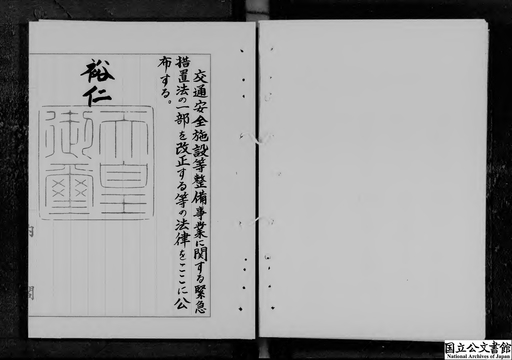 交通安全施設等整備事業に関する緊急
措置法の一部を改正する等の法律をここに公
布する。
裕仁
天皇
御璽
内閣
国立公文書館
National Archives of Japan